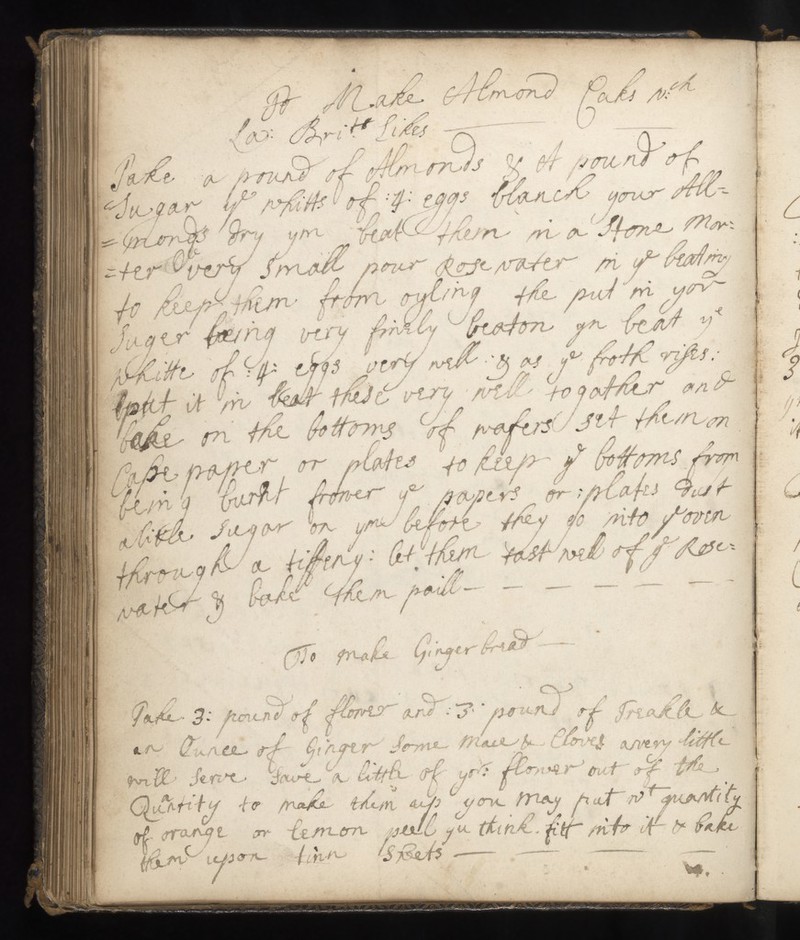 To Make Almond Caks wch
La: Britt Likes
Take a pound of Almonds & A pound of
Sugar ye whitts of :4: eggs blanch your All=
=monds dry ym beat them in a Stone Mor=
=ter very Small pour Rose water in ye beating
to keep them from oyling the put in yor
Suger being very finely beaton yn beat ye
whitte of :4: eggs very well & as ye froth rises:
put it in beat these very well togather and
bake on the bottoms of wafers set them on
Cape paper or plates to keep ye bottoms from
being burnt flower ye papers or :plates dust
a litle Sugar on ym before they go into ye oven
through a tiffeny: let them tast well of ye Rose=
water & bake them paill
To make Ginger bread
Take 3: pound of flower and :3: pound of Treakle &
an Ounce of Ginger Some Mace & Cloves a very little
will Serve Save a little of yor: flower out of the
Quantity to make them up you may put wt quantity
of orange or lemon peel yu think fitt into it & bake
them upon tinn Sheets